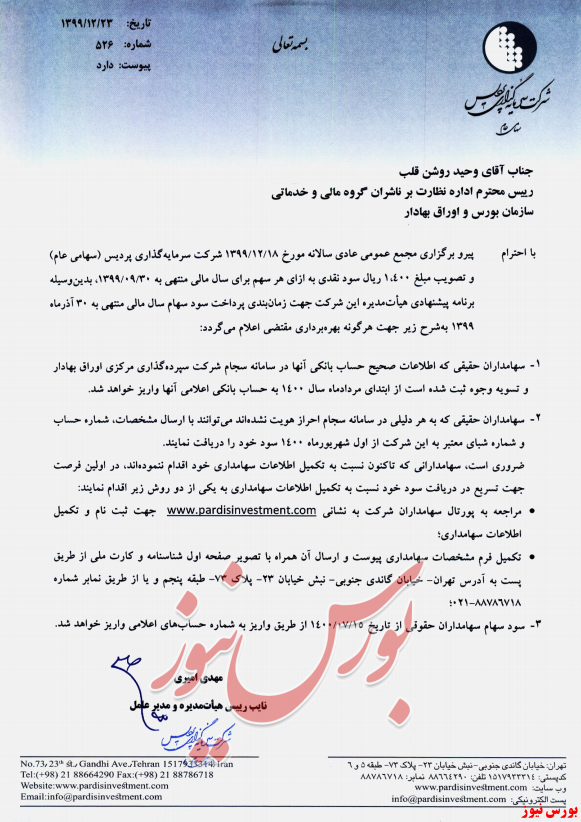 تاریخ: ۱۳۹۹/۱۲/۲۳
شماره: ۵۲۶
پیوست: دارد
بسمه تعالی
شرکت سرمایه گذاری پردیس
سهامی عام
جناب آقای وحید روشن قلب
رییس محترم اداره نظارت بر ناشران گروه مالی و خدماتی
سازمان بورس و اوراق بهادار
با احترام
پیرو برگزاری مجمع عمومی عادی سالانه مورخ ۱۳۹۹/۱۲/۱۸ شرکت سرمایه‌گذاری پردیس (سهامی عام)
و تصویب مبلغ ۱,۴۰۰ ریال سود نقدی به ازای هر سهم برای سال مالی منتهی به ۱۳۹۹/۰۹/۳۰، بدین‌وسیله
برنامه پیشنهادی هیأت‌مدیره این شرکت جهت زمان‌بندی پرداخت سود سهام سال مالی منتهی به ۳۰ آذرماه
۱۳۹۹ به‌شرح زیر جهت هرگونه بهره‌برداری مقتضی اعلام می‌گردد:
۱- سهامداران حقیقی که اطلاعات صحیح حساب بانکی آنها در سامانه سجام شرکت سپرده‌گذاری مرکزی اوراق بهادار
و تسویه وجوه ثبت شده است از ابتدای مردادماه سال ۱۴۰۰ به حساب بانکی اعلامی آنها واریز خواهد شد.
۲- سهامداران حقیقی که به هر دلیلی در سامانه سجام احراز هویت نشده‌اند می‌توانند با ارسال مشخصات، شماره حساب
و شماره شبای معتبر به این شرکت از اول شهریورماه ۱۴۰۰ سود خود را دریافت نمایند.
ضروری است، سهامدارانی که تاکنون نسبت به تکمیل اطلاعات سهامداری خود اقدام ننموده‌اند، در اولین فرصت
جهت تسریع در دریافت سود خود نسبت به تکمیل اطلاعات سهامداری به یکی از دو روش زیر اقدام نمایند:
• مراجعه به پورتال سهامداران شرکت به نشانی www.pardisinvestment.com جهت ثبت نام و تکمیل
اطلاعات سهامداری؛
• تکمیل فرم مشخصات سهامداری پیوست و ارسال آن همراه با تصویر صفحه اول شناسنامه و کارت ملی از طریق
پست به آدرس تهران- خیابان گاندی جنوبی- نبش خیابان ۲۳- پلاک ۷۳- طبقه پنجم و یا از طریق نمابر شماره
۰۲۱-۸۸۷۸۶۷۱۸؛
۳- سود سهام سهامداران حقوقی از تاریخ ۱۴۰۰/۰۷/۱۵ از طریق واریز به شماره حساب‌های اعلامی واریز خواهد شد.
بورس نیوز
مهدی امیری
نایب رییس هیأت‌مدیره و مدیرعامل
شرکت سرمایه گذاری پردیس
No.73, 23th st., Gandhi Ave., Tehran Iran
Tel:(+98) 21 88664290 Fax:(+98) 21 88786718
Website:www.pardisinvestment.com
Email:info@pardisinvestment.com
تهران: خیابان گاندی جنوبی- نبش خیابان ۲۳- پلاک ۷۳- طبقه ۵ و ۶
کدپستی: ۱۵۱۷۹۳۳۳۱۴ تلفن: ۸۸۶۶۴۲۹۰ نمابر: ۸۸۷۸۶۷۱۸
وب سایت: www.pardisinvestment.com
پست الکترونیکی: info@pardisinvestment.com
بورس نیوز